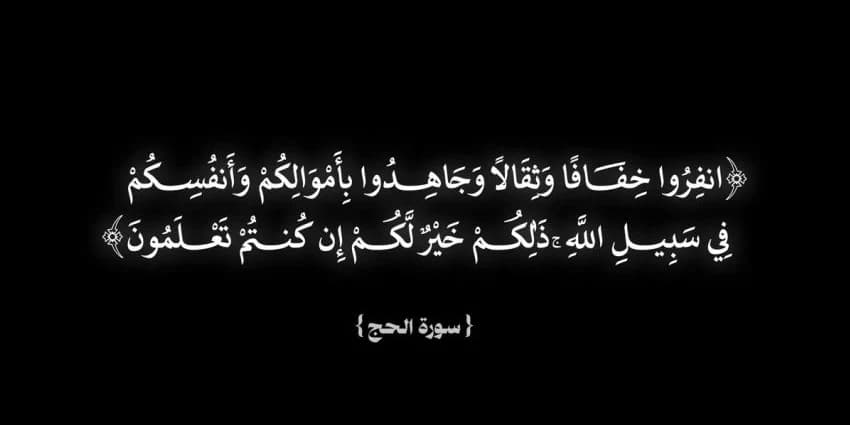 ﴿انفِرُوا خِفَافًا وَثِقَالًا وَجَاهِدُوا بِأَمْوَالِكُمْ وَأَنفُسِكُمْ
فِي سَبِيلِ اللَّهِ ۚ ذَٰلِكُمْ خَيْرٌ لَّكُمْ إِن كُنتُمْ تَعْلَمُونَ﴾
{سورة الحج}